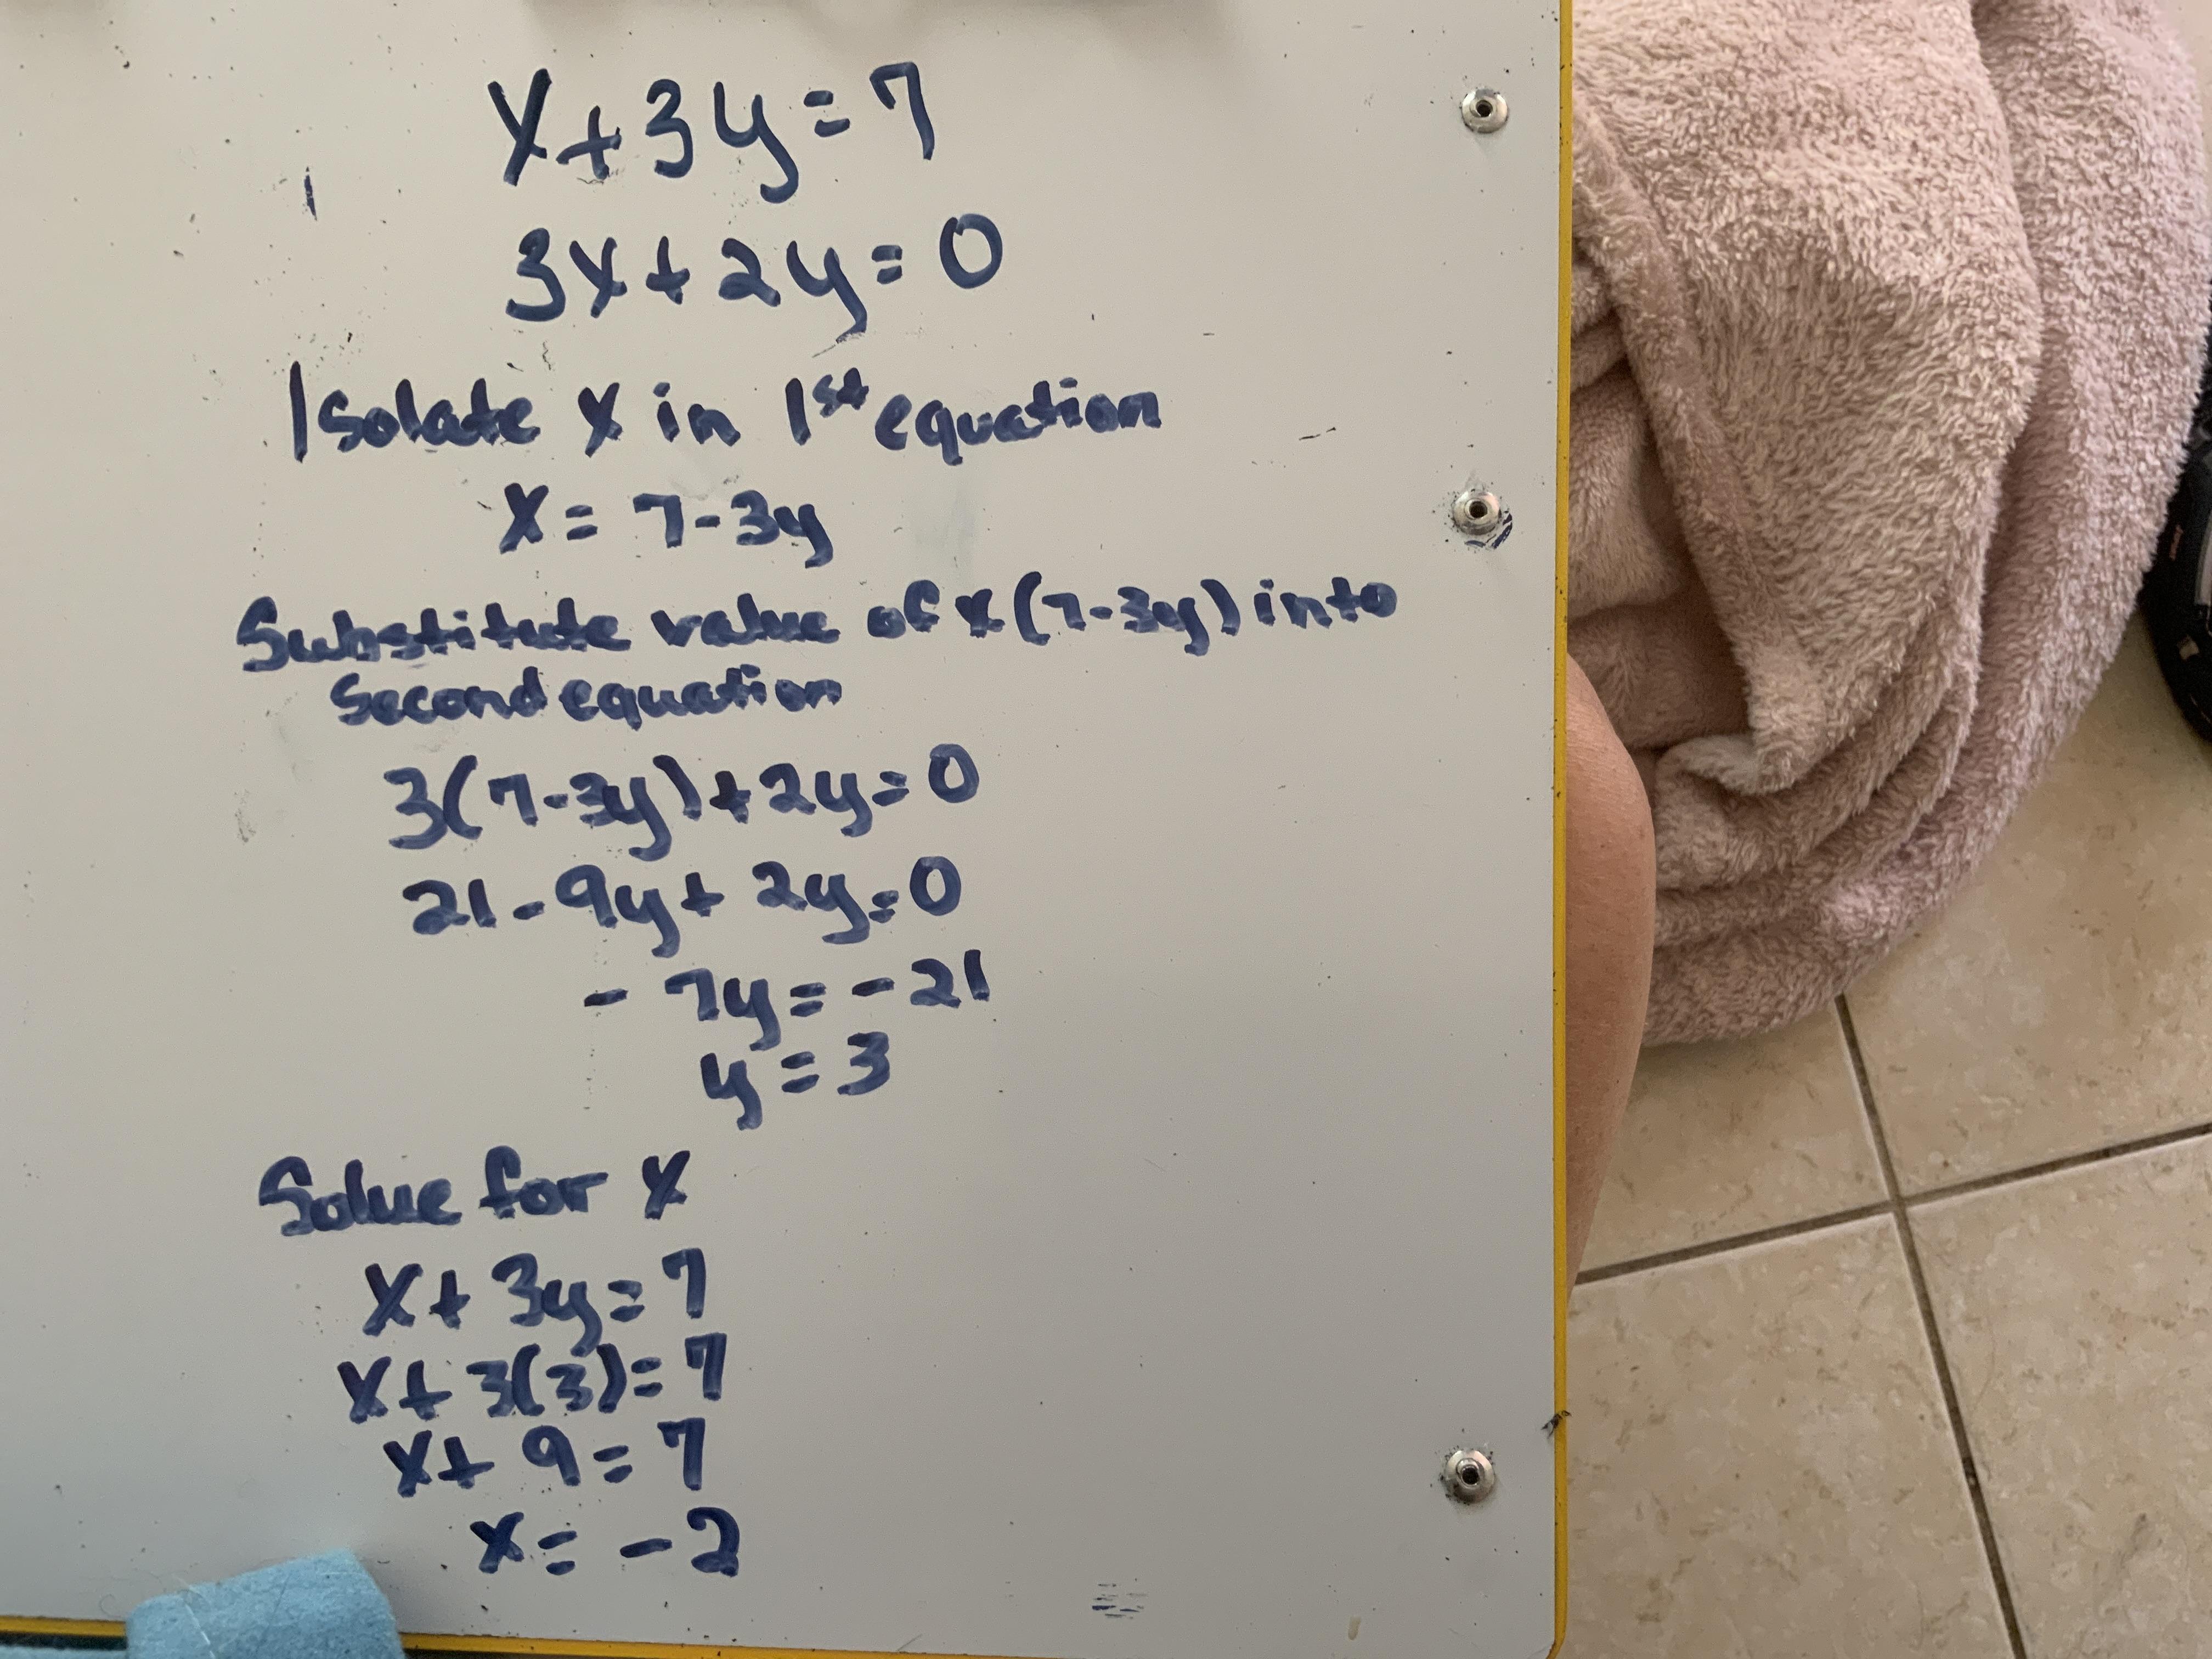 x+3y=7
3x+2y=0
Isolate x in 1st equation
x=7-3y
Substitute value of x(7-3y) into
second equation
3(7-3y)+2y=0
21-9y+2y=0
-7y=-21
y=3
Solve for x
x+3y=7
x+3(3)=7
x+9=7
x=-2